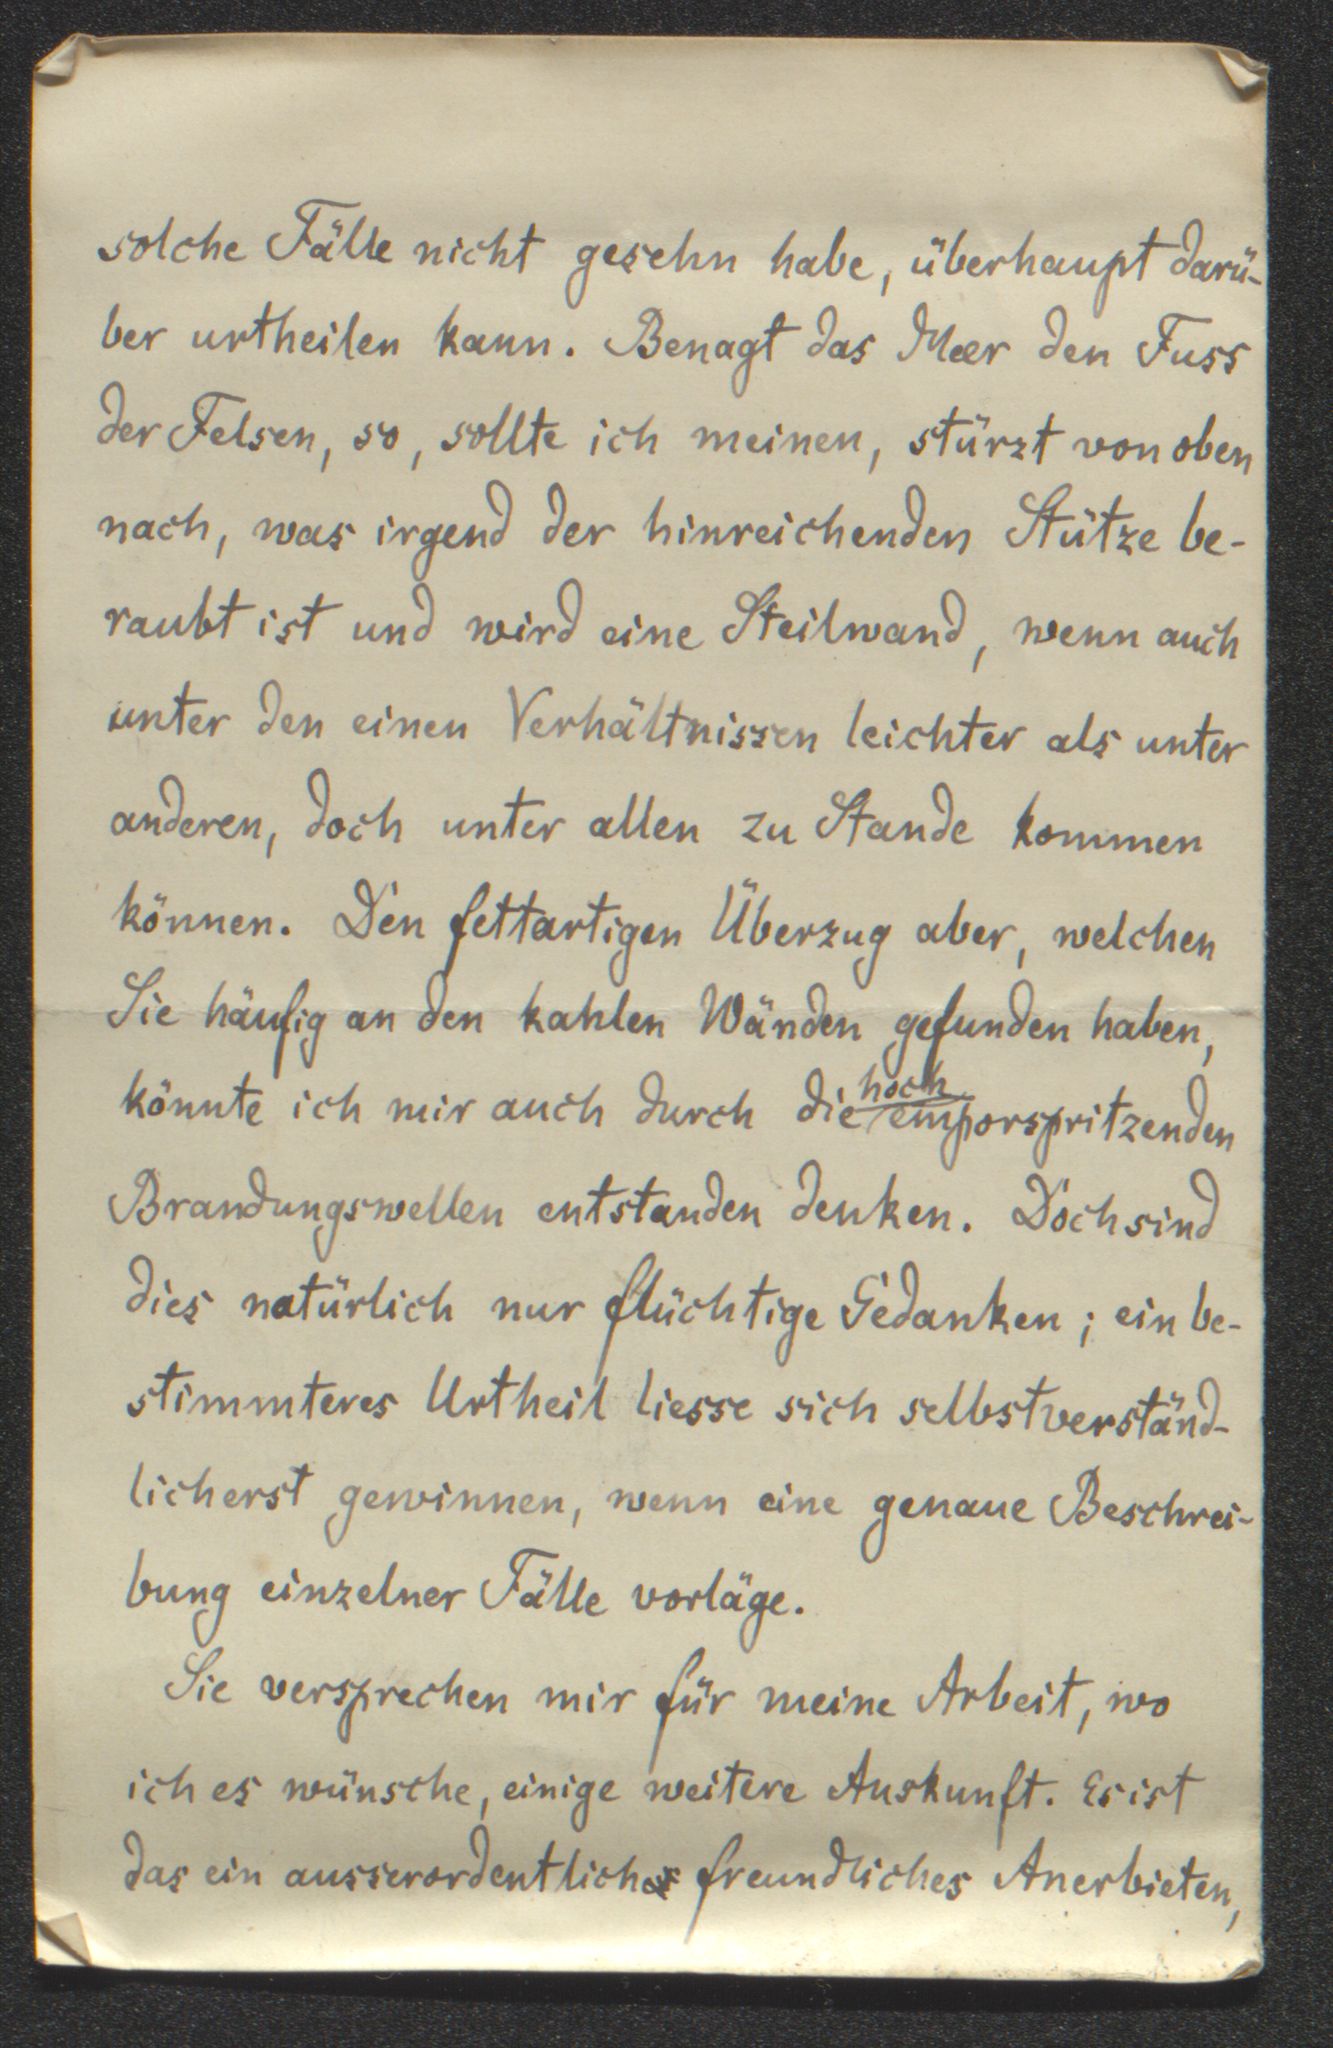 solche Fälle nicht gesehn habe, überhaupt darü-
ber urtheilen kann. Benagt das Meer den Fuss
der Felsen, so, sollte ich meinen, stürzt von oben
nach, was irgend der hinreichenden Stütze be-
raubt ist und wird eine Steilwand, wenn auch
unter den einen Verhältnissen leichter als unter
anderen, doch unter allen zu Stande kommen
können. Den fettartigen Überzug aber, welchen
Sie häufig an den kahlen Wänden gefunden haben,
hoch
könnte ich mir auch durch die emporspritzenden
Brandungswellen entstanden denken. Doch sind
dies natürlich nur flüchtige Gedanken; ein be-
stimmteres Urtheil liesse sich selbstverständ-
lich erst gewinnen, wenn eine genaue Beschrei-
bung einzelner Fälle vorläge.
Sie versprechen mir für meine Arbeit, wo
ich es wünsche, einige weitere Auskunft. Es ist
das ein ausserordentlich freundliches Anerbieten,